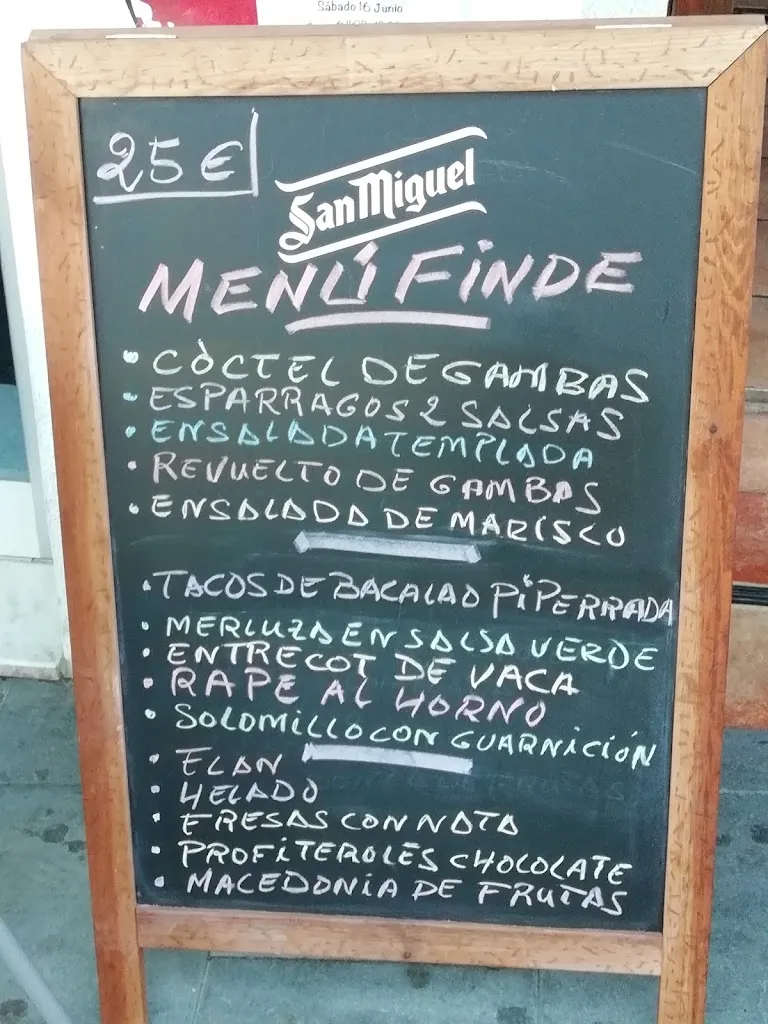 Sábado 16 Junio
25 €
San Miguel
MENÚ FINDE
• CÒCTEL DE GAMBAS
• ESPARRAGOS 2 SALSAS
• ENSALADA TEMPLADA
• REVUELTO DE GAMBAS
• ENSALADA DE MARISCO
• TACOS DE BACALAO PIPERRADA
• MERLUZA EN SALSA VERDE
• ENTRECOT DE VACA
• RAPE AL HORNO
• SOLOMILLO CON GUARNICIÓN
• FLAN
• HELADO
• FRESAS CON NATA
• PROFITEROLES CHOCOLATE
• MACEDONIA DE FRUTAS